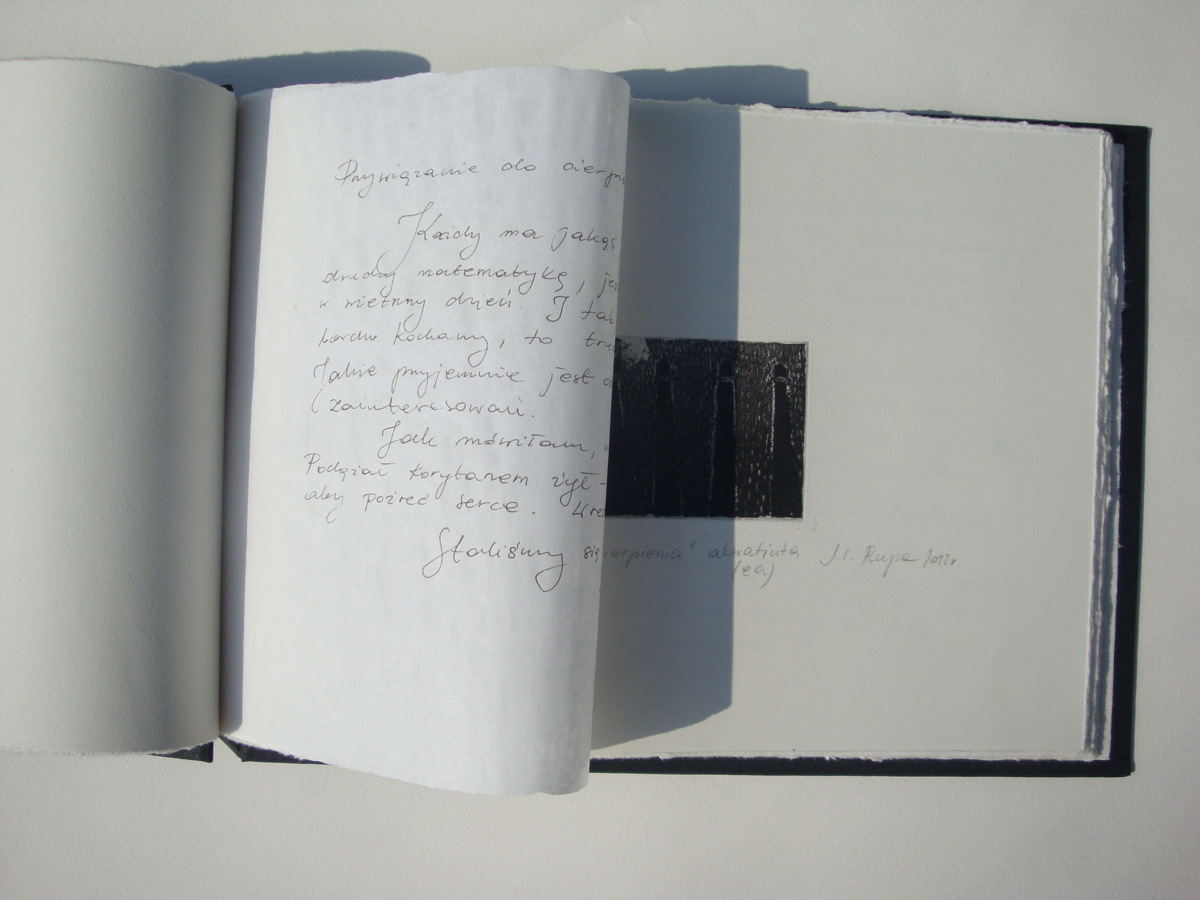 Przywiązanie do cierp
Każdy ma jakąś
drudzy matematykę, je
w mietnny dzień. I tak
bardzo kochamy, to tru
Jakie przyjemnie jest
zainteresowań.
Jak mówiłam,
Podążał korytarzem żył -
aby pożreć serce.
Staliśmy się
erpienia" akwatinta M. Rupa 2012r
(ea)